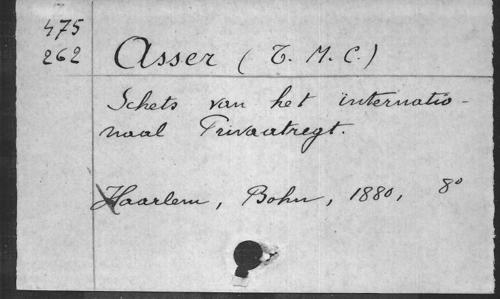 475
262
Asser (T. M. C.)
Schets van het internatio-
naal Privaatregt.
Haarlem, Bohn, 1880, 8°